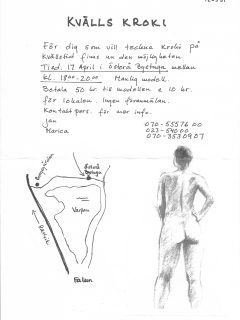 KVÄLLS KROKI
För dig som vill teckna kroki på
kvällstid finns nu den möjligheten
Tisd. 17 April i Östorå Bystuga mellan
kl. 18:00-20:00 Manlig modell.
Betala 50 kr. till modellen o 10 kr.
för lokalen. Ingen föranmälan.
Kontakt pers. för mer info.
Jan 070-55576 00
Marica 023-540 00
070-353 0907
Östorå
Bystuga
Varpan
Rättvik
Falun